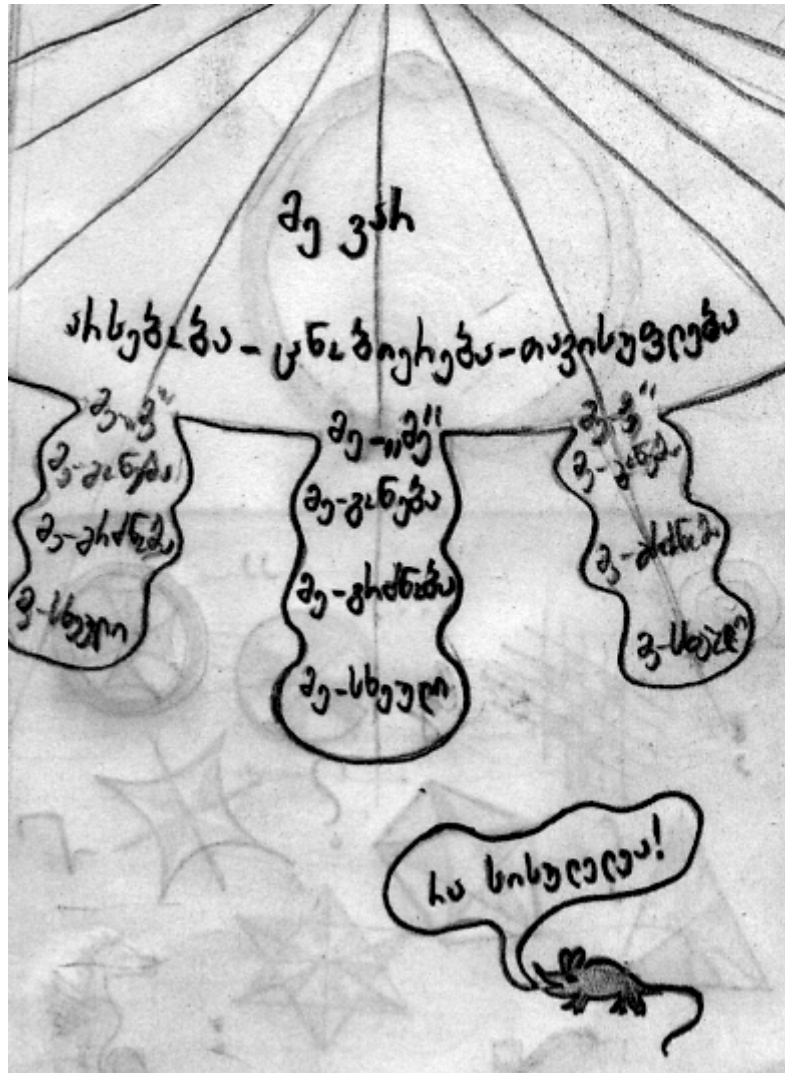 მე ვარ
არსებობა - ცნობიერება - თავისუფლება
მე-„მე“
მე-გონება
მე-გრძნობა
მე-სხეული
მე-„მე“
მე-გონება
მე-გრძნობა
მე-სხეული
მე-„მე“
მე-გონება
მე-გრძნობა
მე-სხეული
რა სისულელეა!